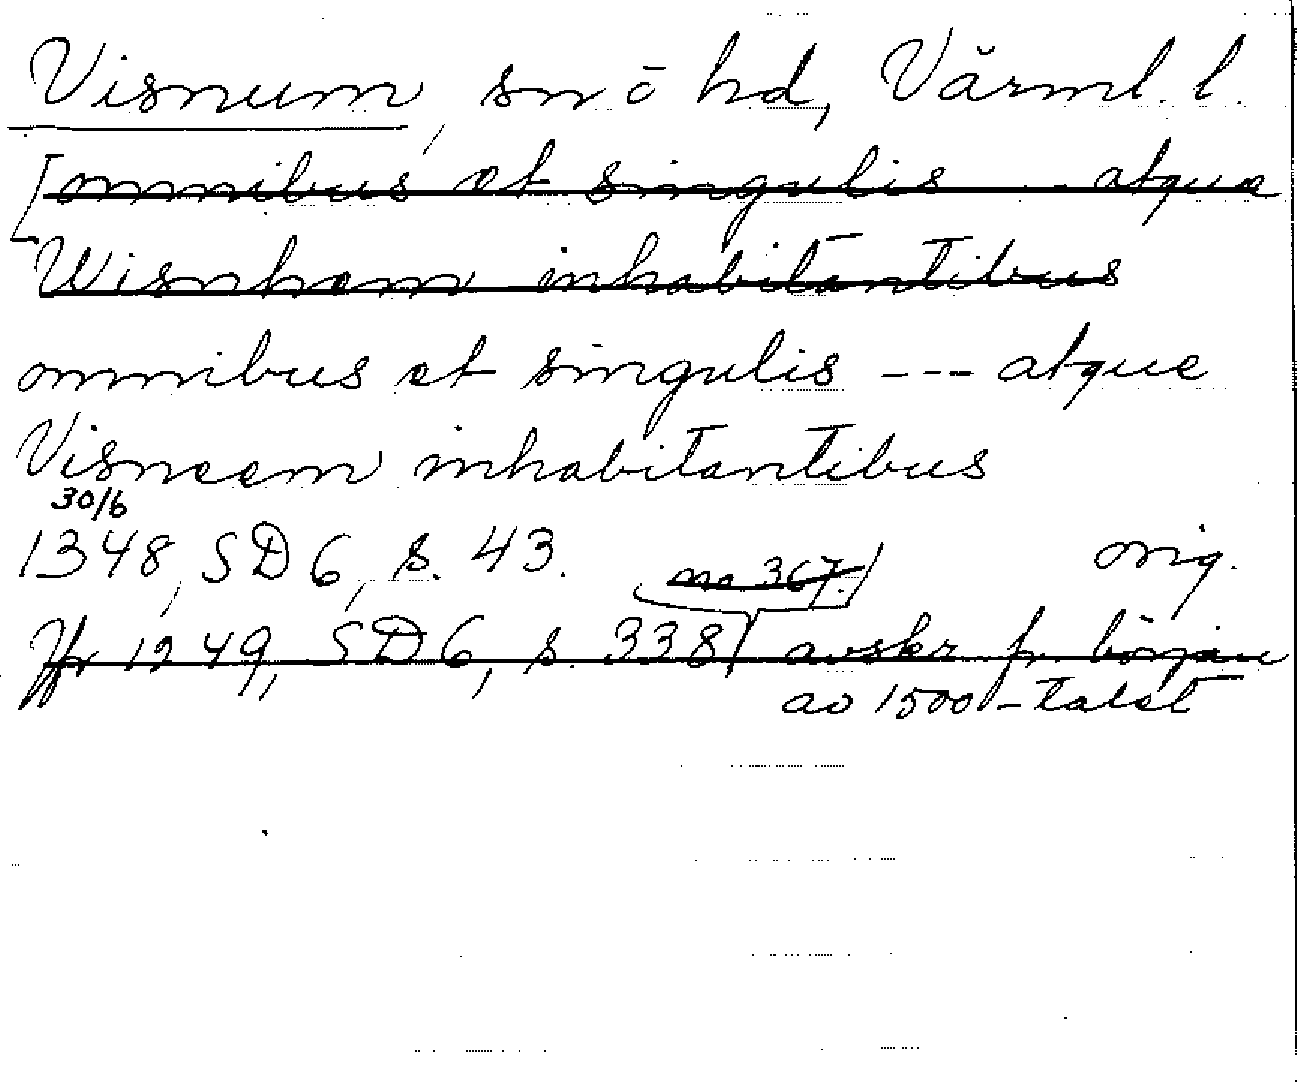 Visnum, sn ō hd, Värml. l.
[omnibus et singulis --- atque
Wisnhem inhabitantibus
omnibus et singulis --- atque
Visneem inhabitantibus
30/6
1348, SD 6, s. 43. nr 367. orig.
Jfr 1249, SD 6, s. 338 avskr fr. början
av 1500-talet